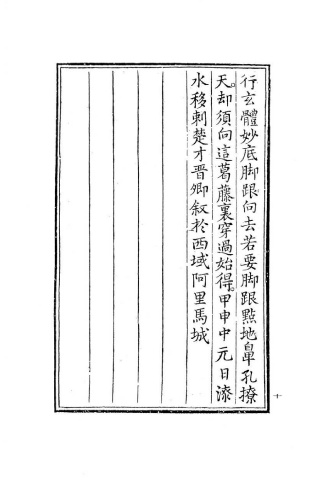 行玄體妙底脚跟向去若要脚跟點地鼻孔撩
天却須向這葛藤裏穿過始得。甲申中元日漆
水移剌楚才晋卿叙於西域阿里馬城
十